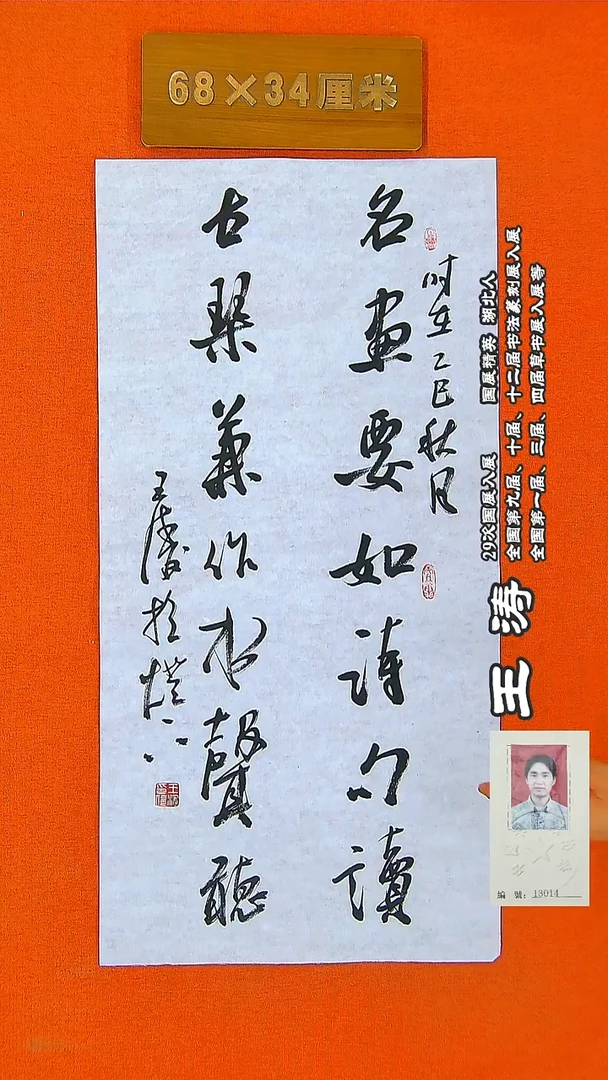 68×34厘米
名畫要如詩句讀
古琴兼作水聲聽
时在乙巳秋月
王涛
29次国展入展 国展精英 湖北人
全国第九届、十届、十二届书法篆刻展入展
全国第一届、三届、四届草书展入展等
王涛
编號：13014